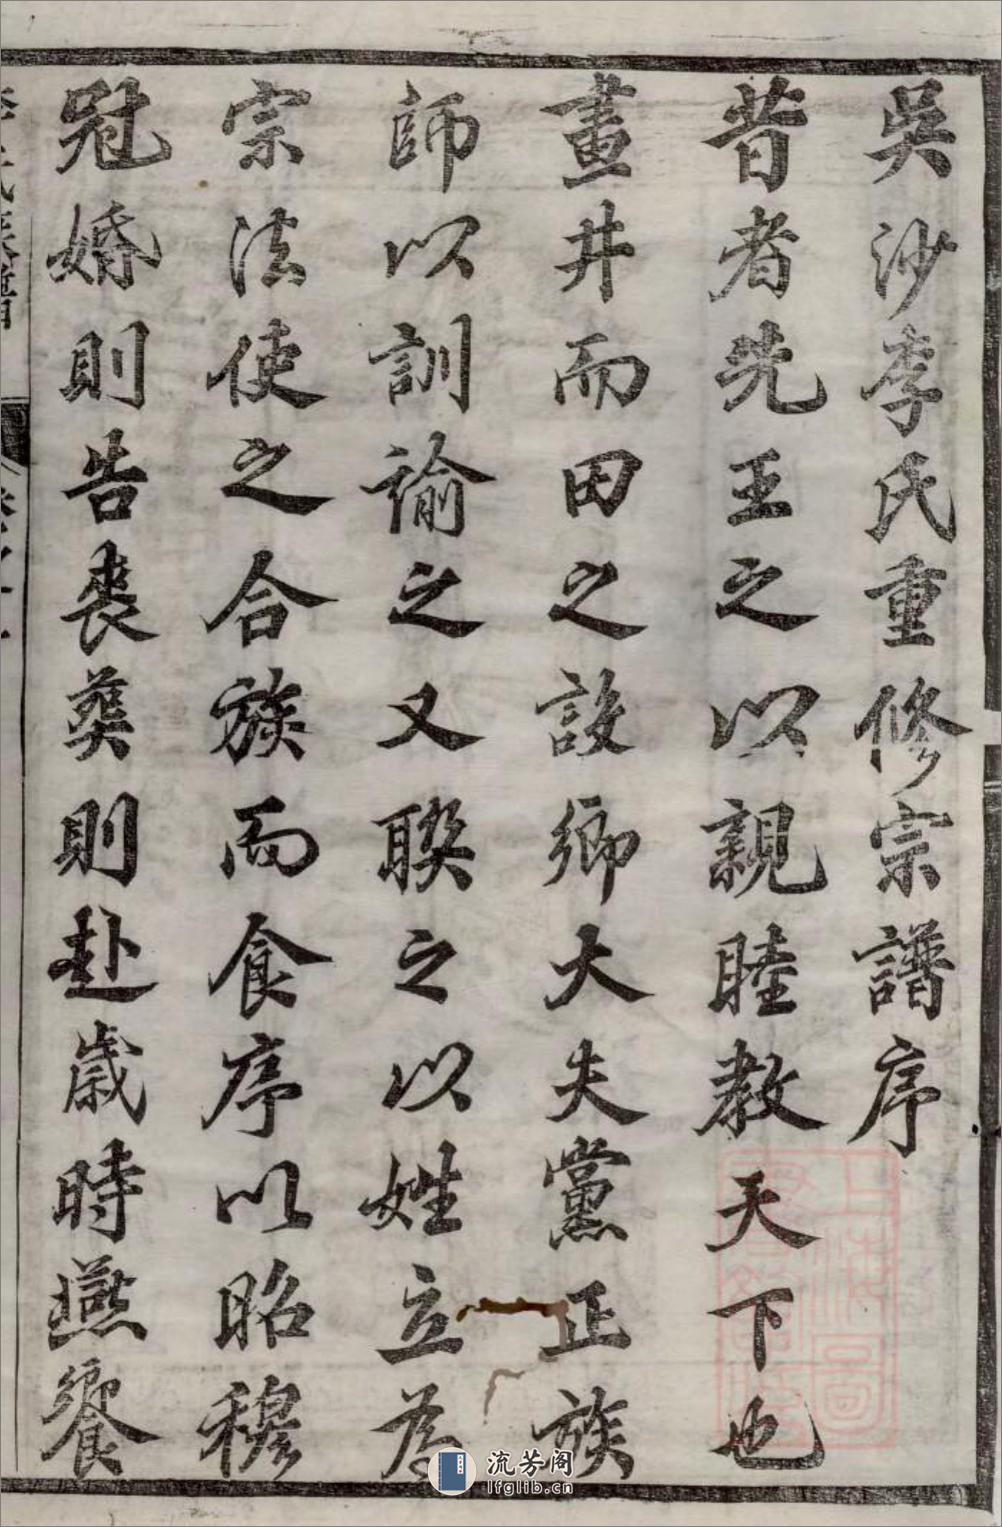 吳沙李氏重修宗譜序
昔者先王之以親睦教天下也
畫井而田之設鄉大夫黨正族
師以訓諭之又聯之以姓立為
宗法使之合族而食序以昭穆
冠婚則告喪葬則赴歲時燕饗
李氏宗譜
上海圖
流芳阁
lfglib.cn